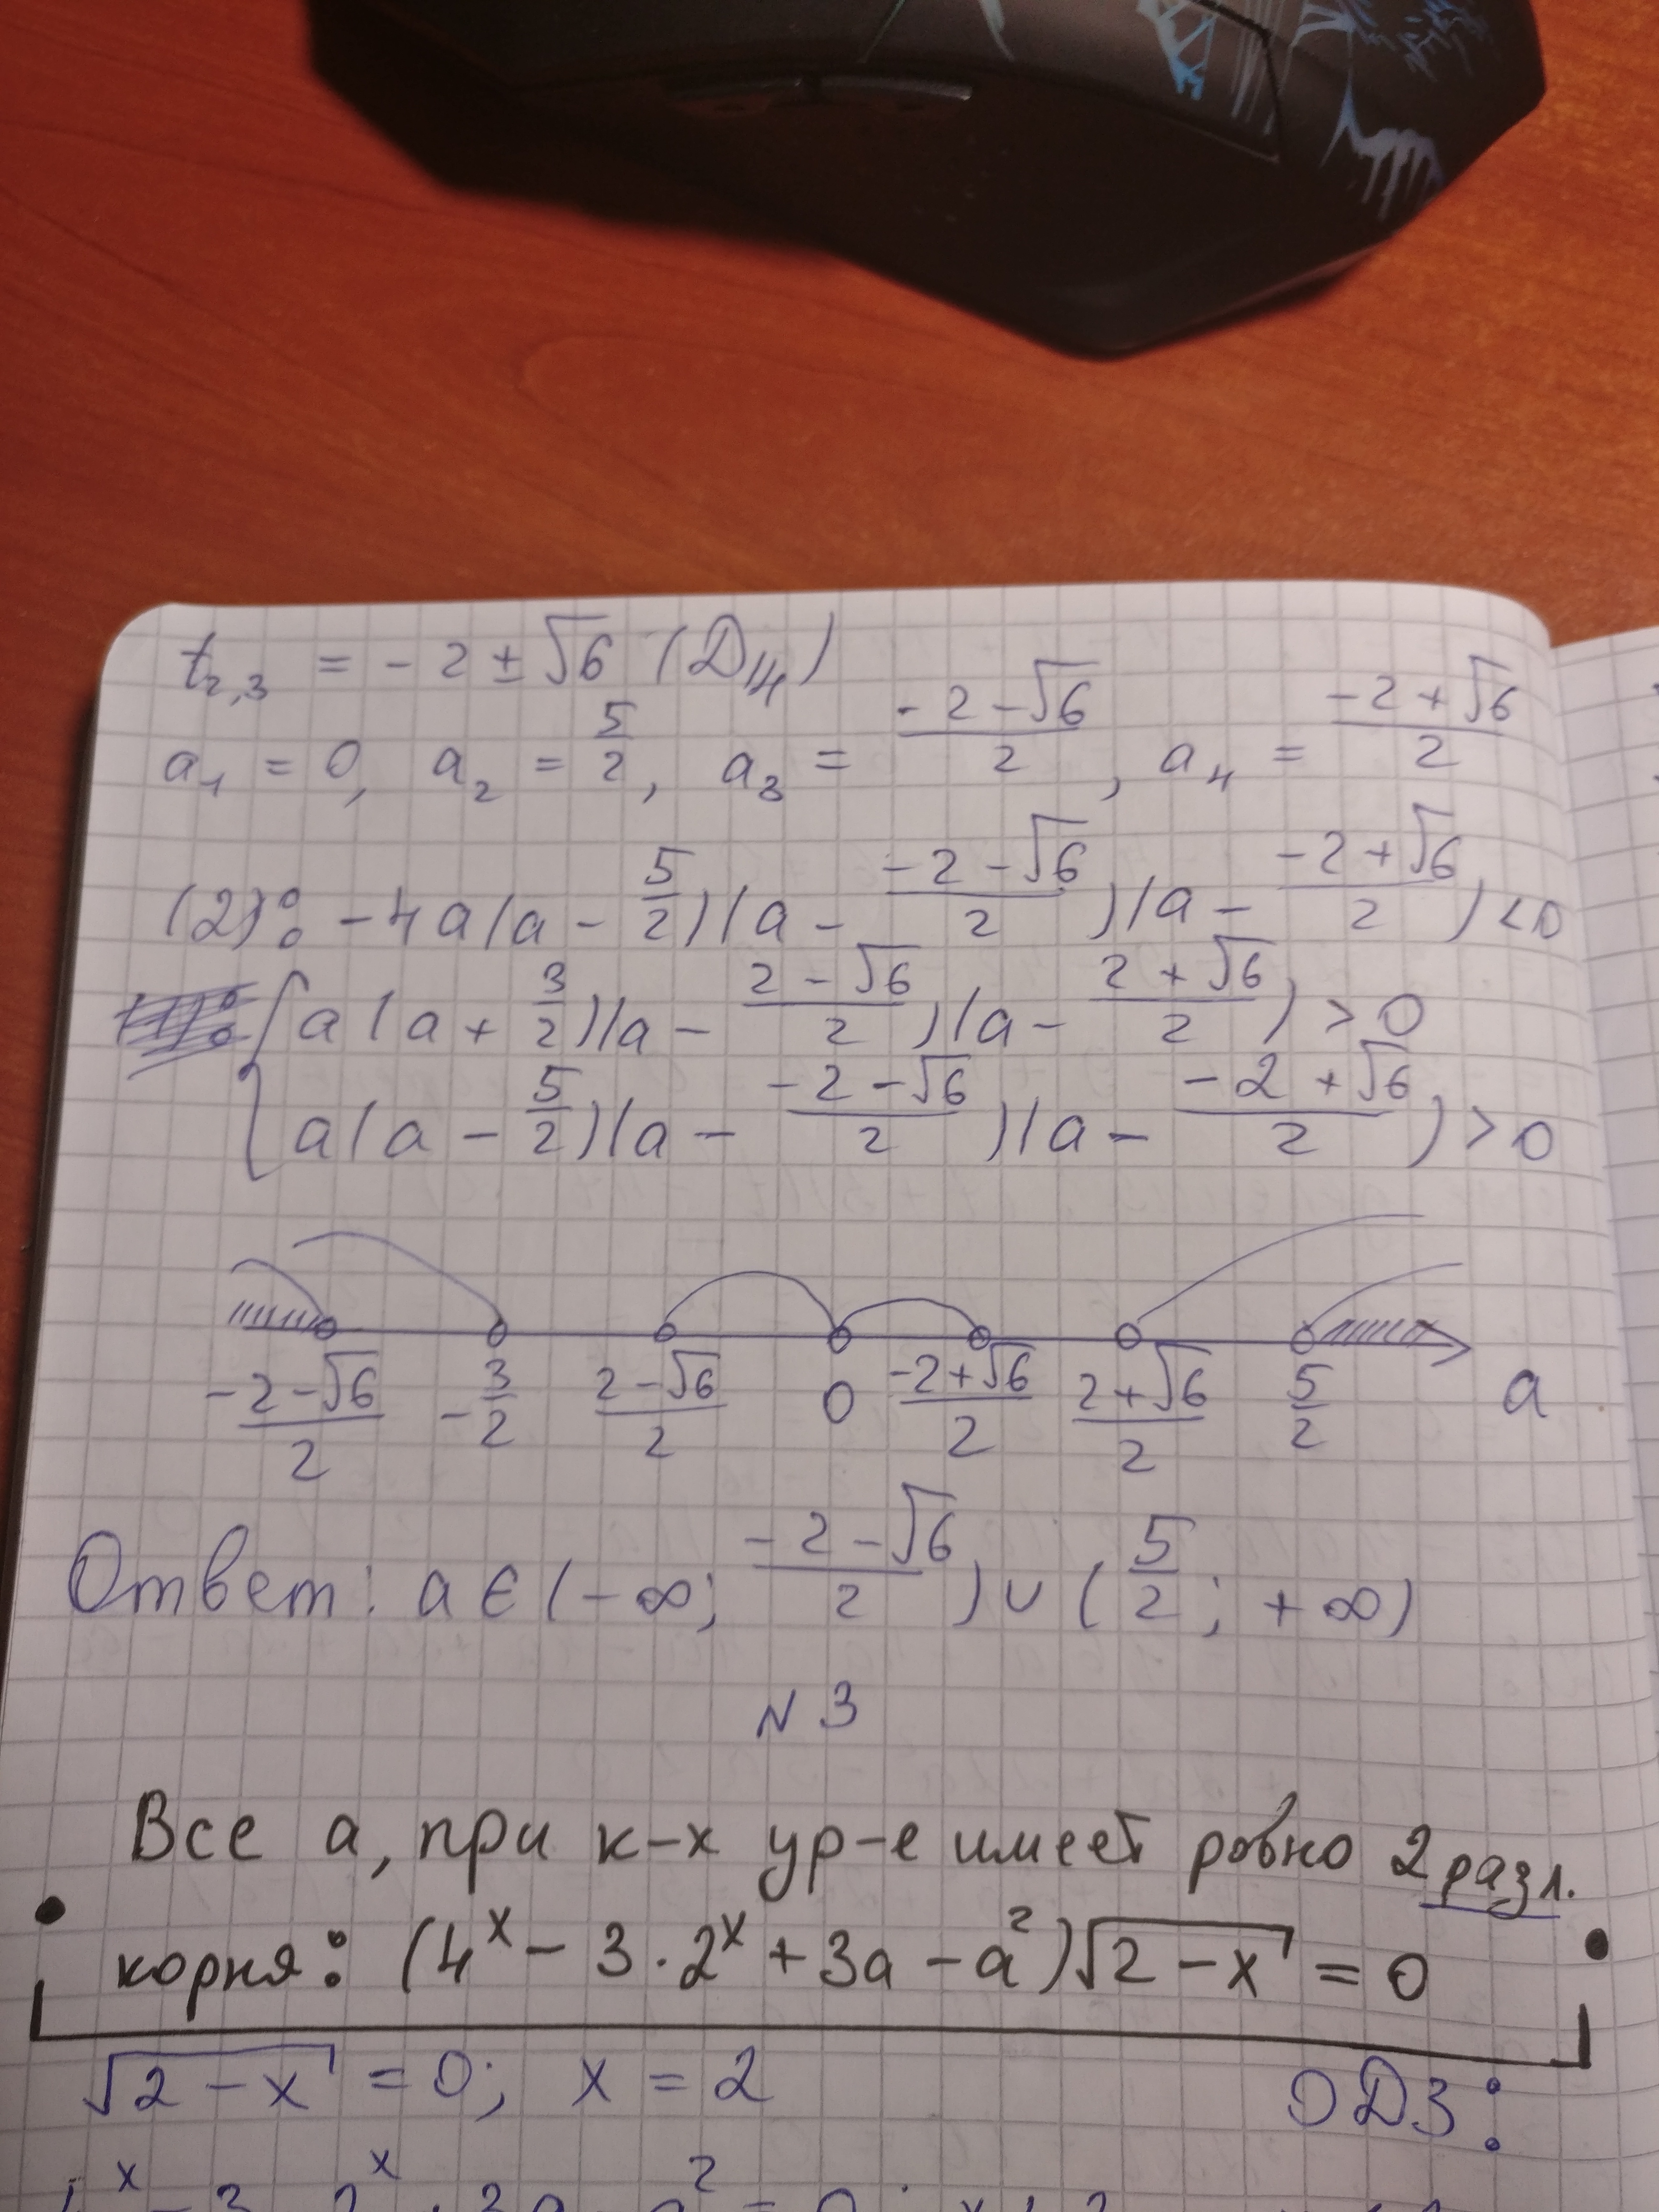 t₂,₃ = -2 ± √6 (D/4)
a₁ = 0, a₂ = 5/2, a₃ = (-2-√6)/2, a₄ = (-2+√6)/2
(2): -4a(a - 5/2)(a - (-2-√6)/2)(a - (-2+√6)/2) < 0
{ a(a + 3/2)(a - (2-√6)/2)(a - (2+√6)/2) > 0
a(a - 5/2)(a - (-2-√6)/2)(a - (-2+√6)/2) > 0
(-2-√6)/2 -3/2 (2-√6)/2 0 (-2+√6)/2 (2+√6)/2 5/2 a
Ответ: a ∈ (-∞; (-2-√6)/2) ∪ (5/2; +∞)
N 3
Все а, при к-х ур-е имеет ровно 2 разл.
корня: (4ˣ - 3·2ˣ + 3a - a²)√(2-x) = 0
√(2-x) = 0; x = 2 ОДЗ: